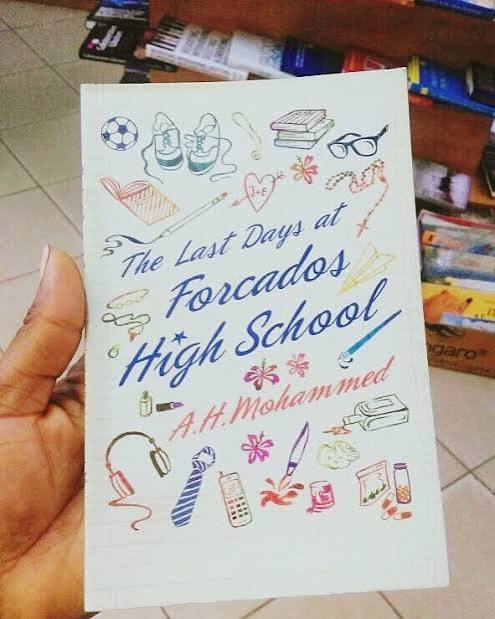 J+E
The Last Days at
Forcados
High School
A.H.Mohammed